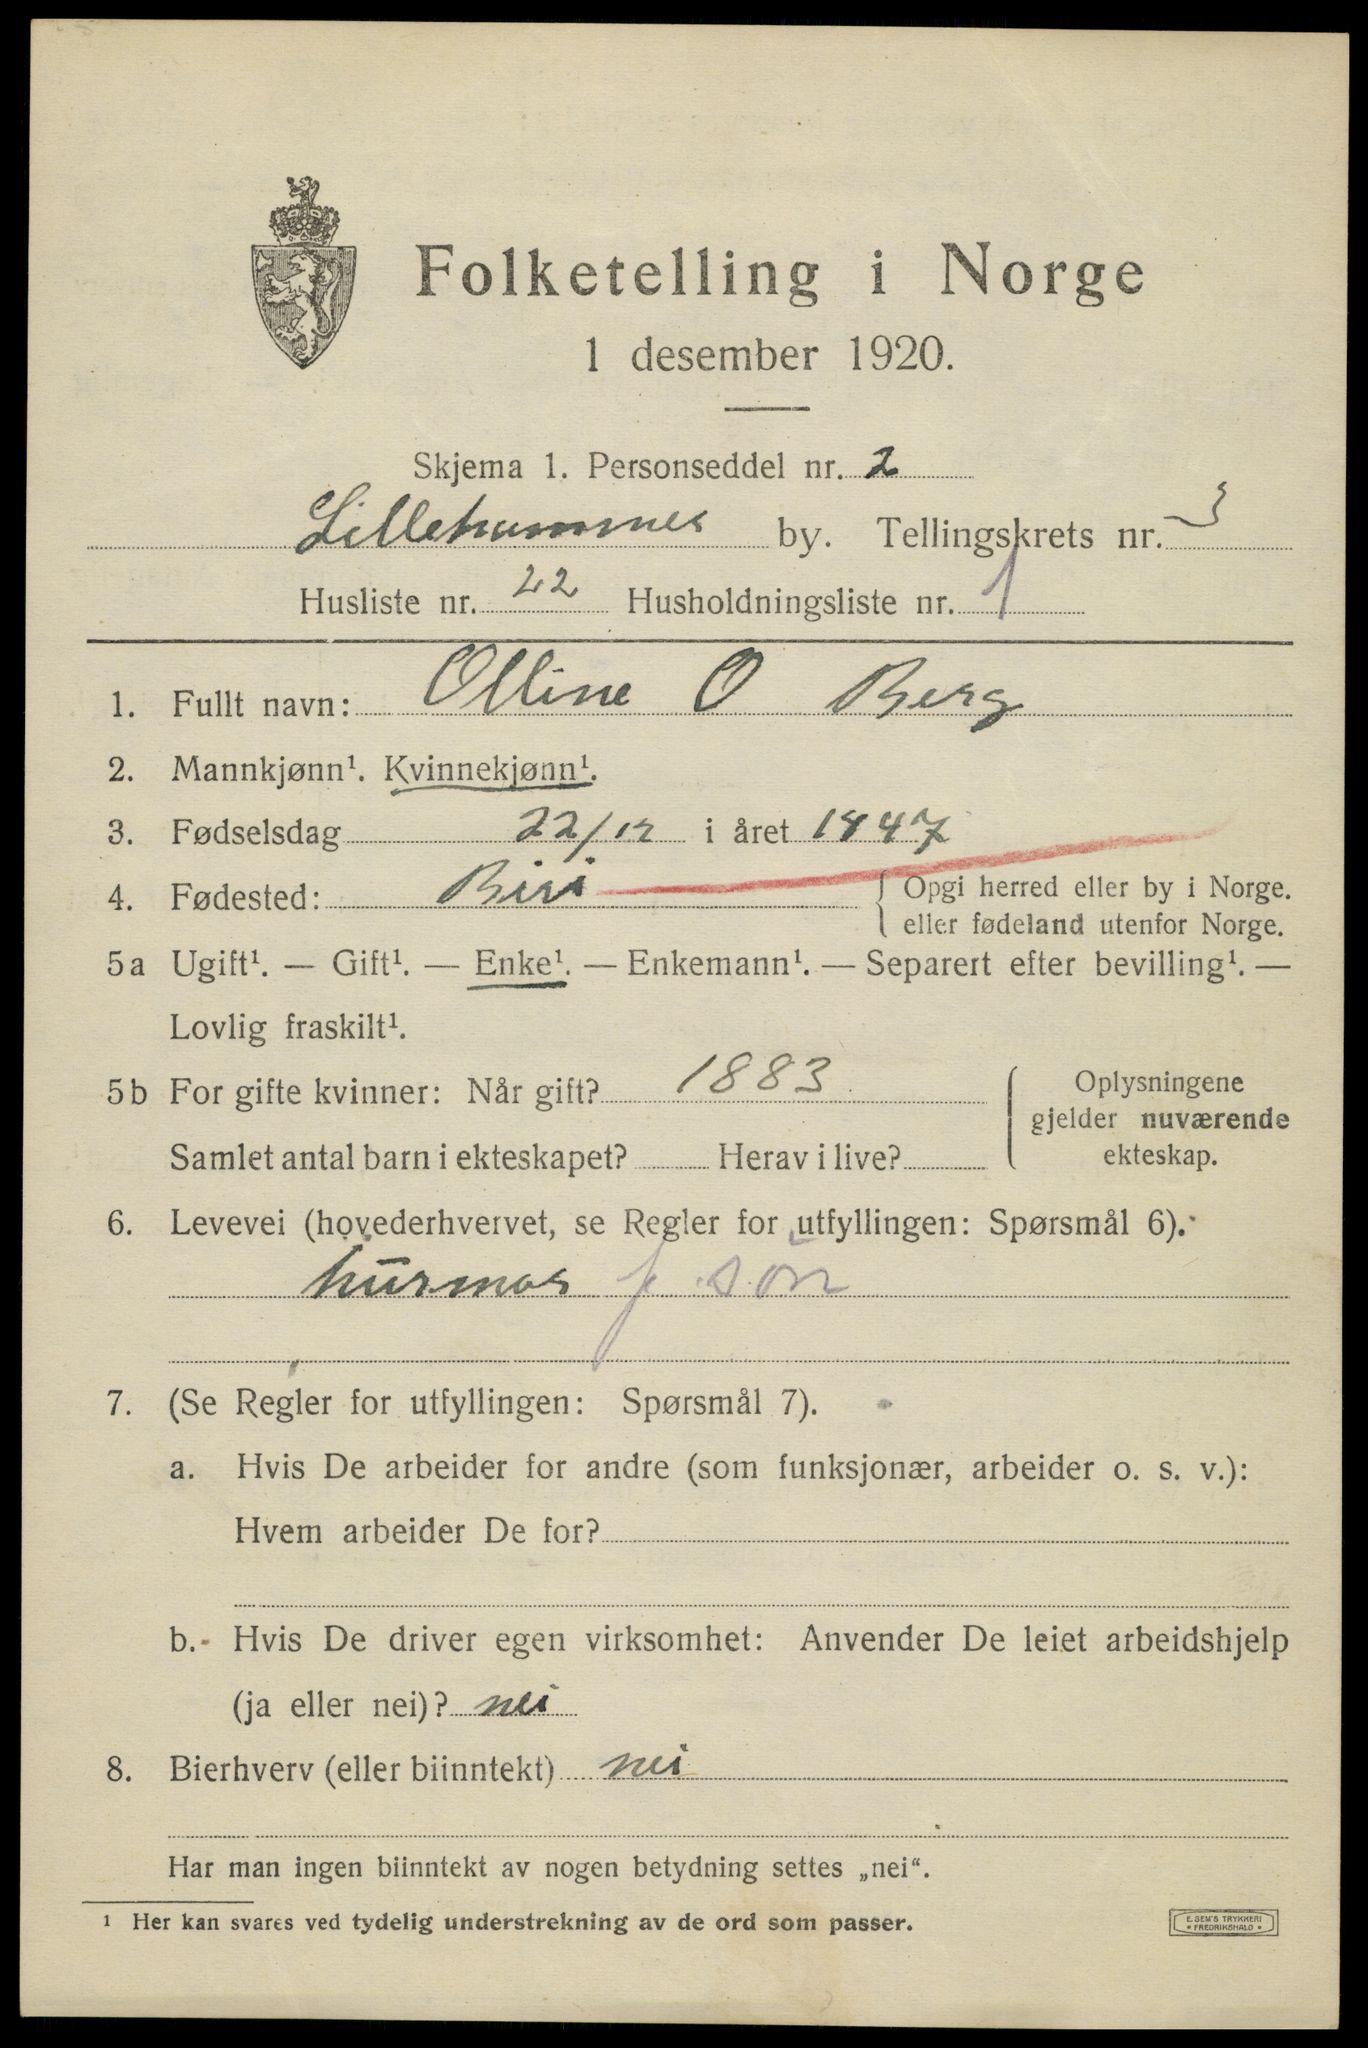 Folketelling i Norge
1 desember 1920.
Skjema 1. Personseddel nr. 2
Lillehammer by. Tellingskrets nr. 3
Husliste nr. 22 Husholdningsliste nr. 1
1. Fullt navn: Olline O Berg
2. Mannkjønn¹. Kvinnekjønn¹.
3. Fødselsdag 22/12 i året 1847
4. Fødested: Biri { Opgi herred eller by i Norge.
eller fødeland utenfor Norge.
5a Ugift¹. — Gift¹. — Enke¹. — Enkemann¹. — Separert efter bevilling¹. —
Lovlig fraskilt¹.
5b For gifte kvinner: Når gift? 1883
Samlet antal barn i ekteskapet? Herav i live?
Oplysningene
gjelder nuværende
ekteskap.
6. Levevei (hovederhvervet, se Regler for utfyllingen: Spørsmål 6).
husmor f. søn
7. (Se Regler for utfyllingen: Spørsmål 7).
a. Hvis De arbeider for andre (som funksjonær, arbeider o. s. v.):
Hvem arbeider De for?
b. Hvis De driver egen virksomhet: Anvender De leiet arbeidshjelp
(ja eller nei)? nei
8. Bierhverv (eller biinntekt) nei
Har man ingen biinntekt av nogen betydning settes „nei“.
¹ Her kan svares ved tydelig understrekning av de ord som passer.
E. SEM'S TRYKKERI
FREDRIKSHALD